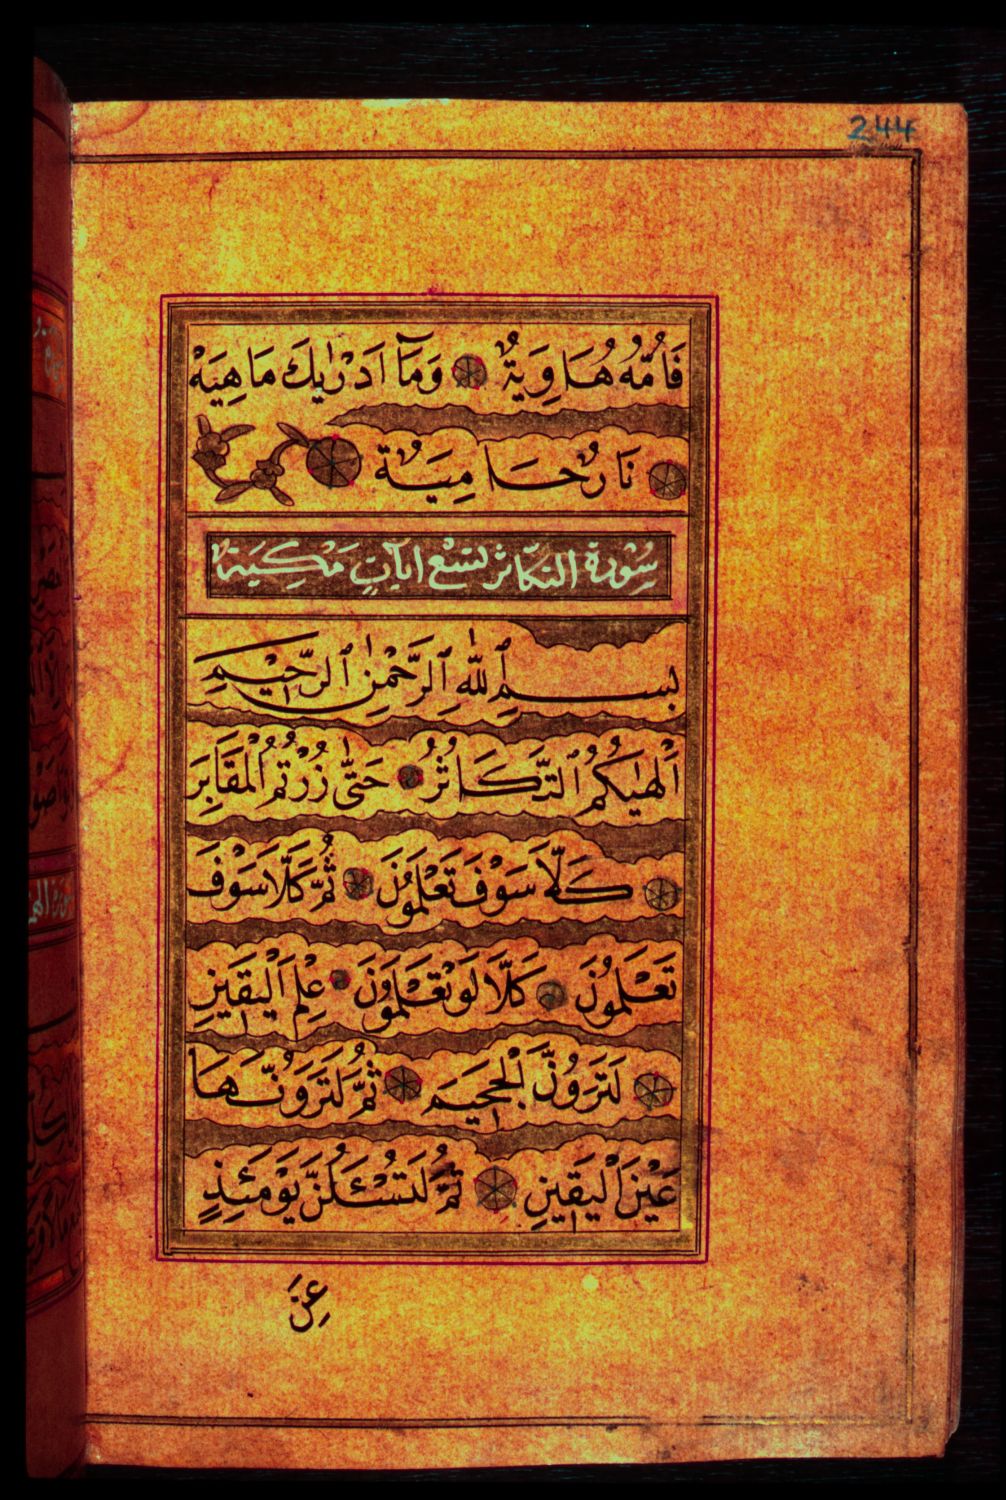 244
فَأُمُّهُ هَاوِيَةٌ وَمَآ اَدْرٰيكَ مَاهِيَهْ
نَارٌ حَامِيَةٌ
سُوْرة التكاثر تسع ايات مَكِّيَة
بِسْمِ ٱللّٰهِ ٱلرَّحْمٰنِ ٱلرَّحِيْمِ
اَلْهٰيكُمُ ٱلتَّكَاثُرُ حَتّٰى زُرْتُمُ الْمَقَابِرَ
كَلَّا سَوْفَ تَعْلَمُوْنَ ثُمَّ كَلَّا سَوْفَ
تَعْلَمُوْنَ كَلَّا لَوْ تَعْلَمُوْنَ عِلْمَ الْيَقِيْنِ
لَتَرَوُنَّ الْجَحِيْمَ ثُمَّ لَتَرَوُنَّهَا
عَيْنَ الْيَقِيْنِ ثُمَّ لَتُسْئَلُنَّ يَوْمَئِذٍ
عَنِ